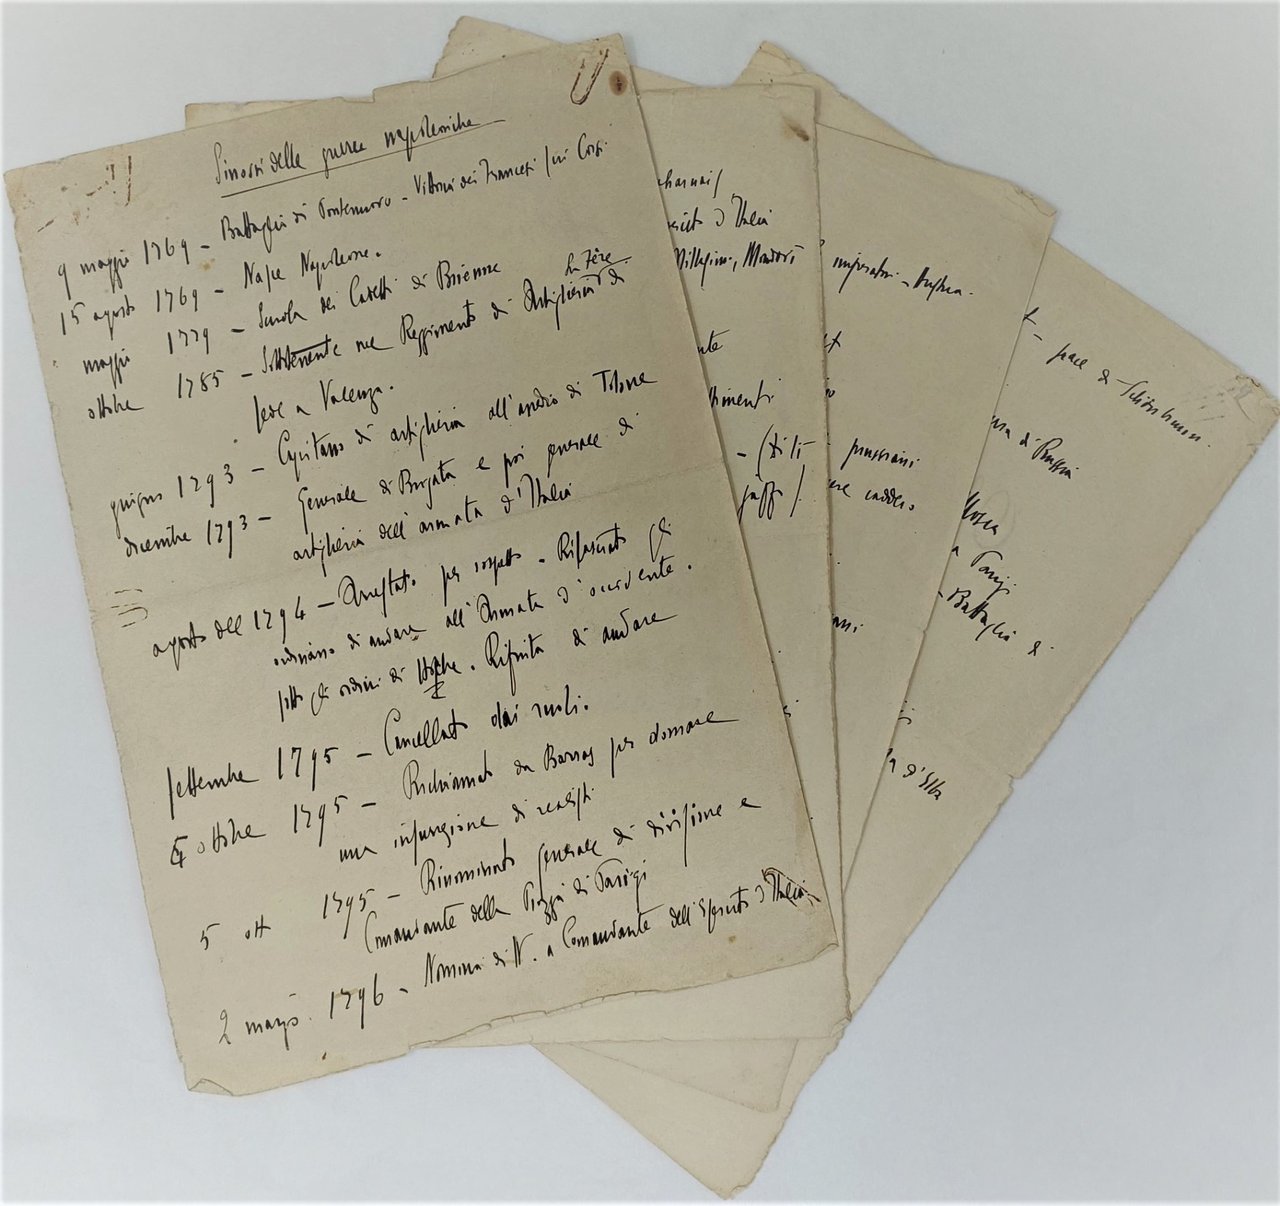 Sinossi delle guerre napoleoniche
9 maggio 1769 - Battaglia di Pontenuovo - Vittoria dei Francesi sui Corsi
15 agosto 1769 - Nasce Napoleone.
maggio 1779 - Scuola dei Cadetti di Brienne
La Fère
ottobre 1785 - Sottotenente nel Reggimento di Artiglieria di
sede a Valenza.
giugno 1793 - Capitano di artiglieria all'assedio di Tolone
dicembre 1793 - Generale di Brigata e poi generale di
artiglieria dell'armata d'Italia
agosto del 1794 - Arrestato per sospetto - Rilasciato gli
ordinano di andare all'Armata d'occidente.
sotto gli ordini di Hoche. Rifiuta di andare
settembre 1795 - Cancellato dai ruoli.
4 ottobre 1795 - Richiamato da Barras per domare
una insurrezione di realisti
5 ott 1795 - Rinominato generale di divisione e
Comandante della Piazza di Parigi
2 marzo 1796 - Nomina di N. a Comandante dell'Esercito d'Italia
d'Italia
Millesimo, Mondovì
(stili
prussiani
imperatori - Austria.
- pace di Schönbrunn.
di Russia
Mosca
a Parigi
- Battaglia di
d'Elba